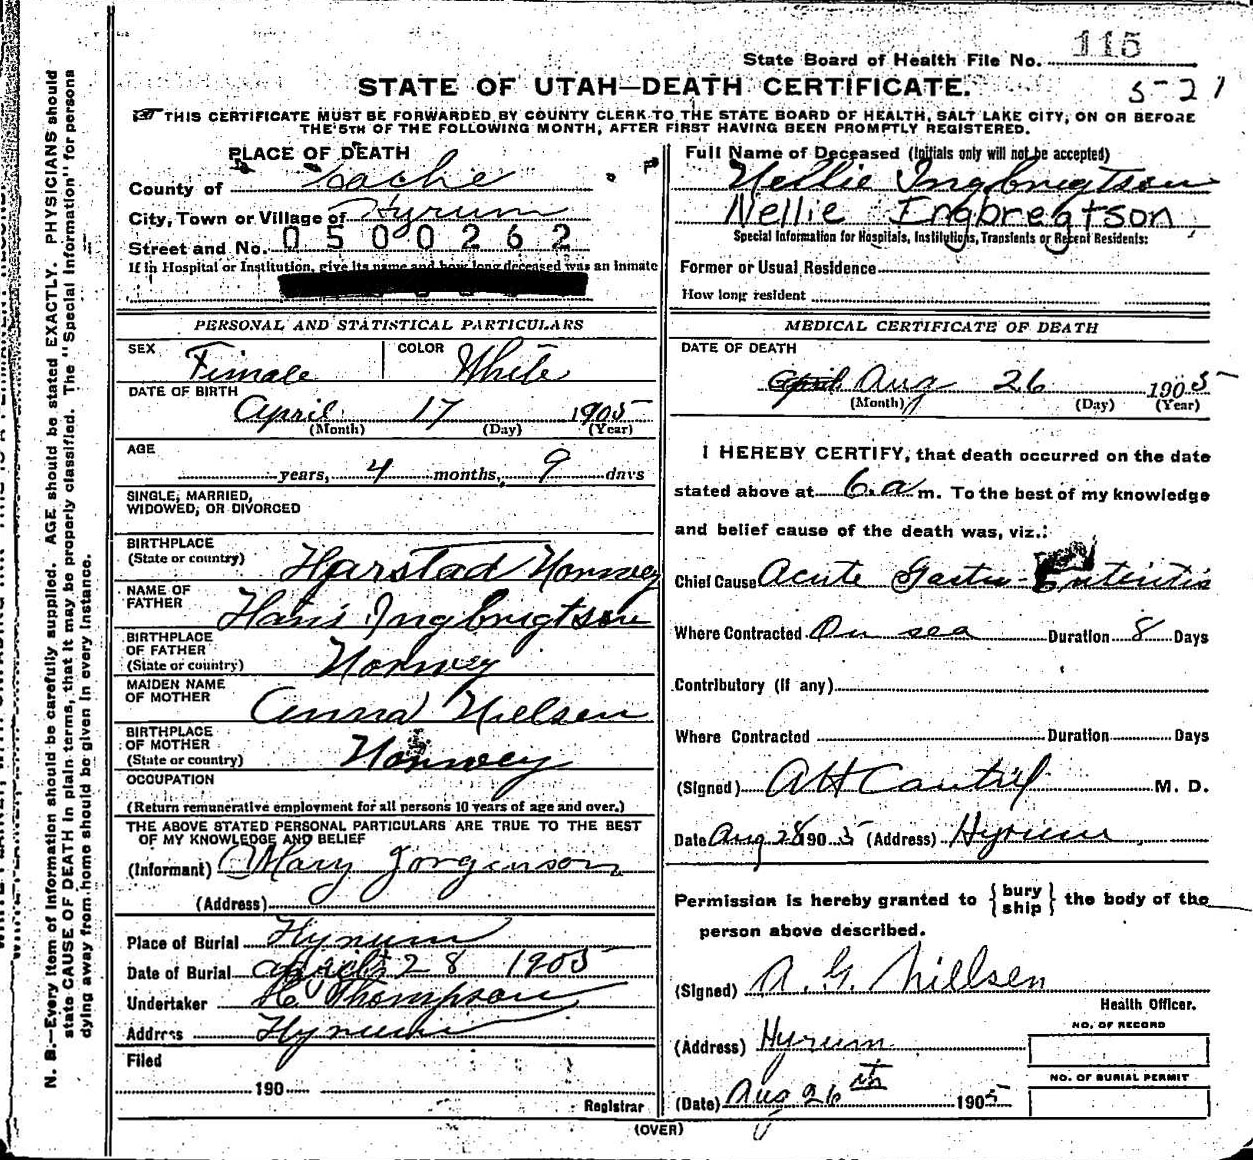 State Board of Health File No. 115
STATE OF UTAH—DEATH CERTIFICATE.
5-21
THIS CERTIFICATE MUST BE FORWARDED BY COUNTY CLERK TO THE STATE BOARD OF HEALTH, SALT LAKE CITY, ON OR BEFORE
THE 5TH OF THE FOLLOWING MONTH, AFTER FIRST HAVING BEEN PROMPTLY REGISTERED.
PLACE OF DEATH
County of Cache
City, Town or Village of Hyrum
Street and No. 0500262
If in Hospital or Institution, give its name and how long deceased was an inmate
Full Name of Deceased (Initials only will not be accepted)
Nellie Ingbregtson
Nellie Ingbregtson
Special Information for Hospitals, Institutions, Transients or Recent Residents:
Former or Usual Residence
How long resident
PERSONAL AND STATISTICAL PARTICULARS
SEX Fimale COLOR White
DATE OF BIRTH
April 17 1905
(Month) (Day) (Year)
AGE
years, 4 months, 9 days
SINGLE, MARRIED,
WIDOWED, OR DIVORCED
BIRTHPLACE
(State or country) Harstad Norwey
NAME OF
FATHER Hans Ingbrigtson
BIRTHPLACE
OF FATHER
(State or country) Norwey
MAIDEN NAME
OF MOTHER Anna Nielsen
BIRTHPLACE
OF MOTHER
(State or country) Norwey
OCCUPATION
(Return remunerative employment for all persons 10 years of age and over.)
THE ABOVE STATED PERSONAL PARTICULARS ARE TRUE TO THE BEST
OF MY KNOWLEDGE AND BELIEF
(Informant) Mary Jorgenson
(Address)
Place of Burial Hyrum
Date of Burial April 28 1905
Undertaker H C Thompson
Address Hyrum
Filed
190
Registrar
MEDICAL CERTIFICATE OF DEATH
DATE OF DEATH
April Aug 26 1905
(Month) (Day) (Year)
I HEREBY CERTIFY, that death occurred on the date
stated above at 6.a m. To the best of my knowledge
and belief cause of the death was, viz.:
Chief Cause Acute Gastro-Enteritis
Where Contracted On sea Duration 8 Days
Contributory (If any)
Where Contracted Duration Days
(Signed) A H Cantril M. D.
Date Aug 28 1905 (Address) Hyrum
Permission is hereby granted to {bury ship} the body of the
person above described.
(Signed) A. G. Nillsen
Health Officer.
(Address) Hyrum
NO. OF RECORD
NO. OF BURIAL PERMIT
(Date) Aug 26th 1905
(OVER)
N. B.—Every item of information should be carefully supplied. AGE should be stated EXACTLY. PHYSICIANS should
state CAUSE OF DEATH in plain terms, that it may be properly classified. The "Special Information" for persons
dying away from home should be given in every instance.